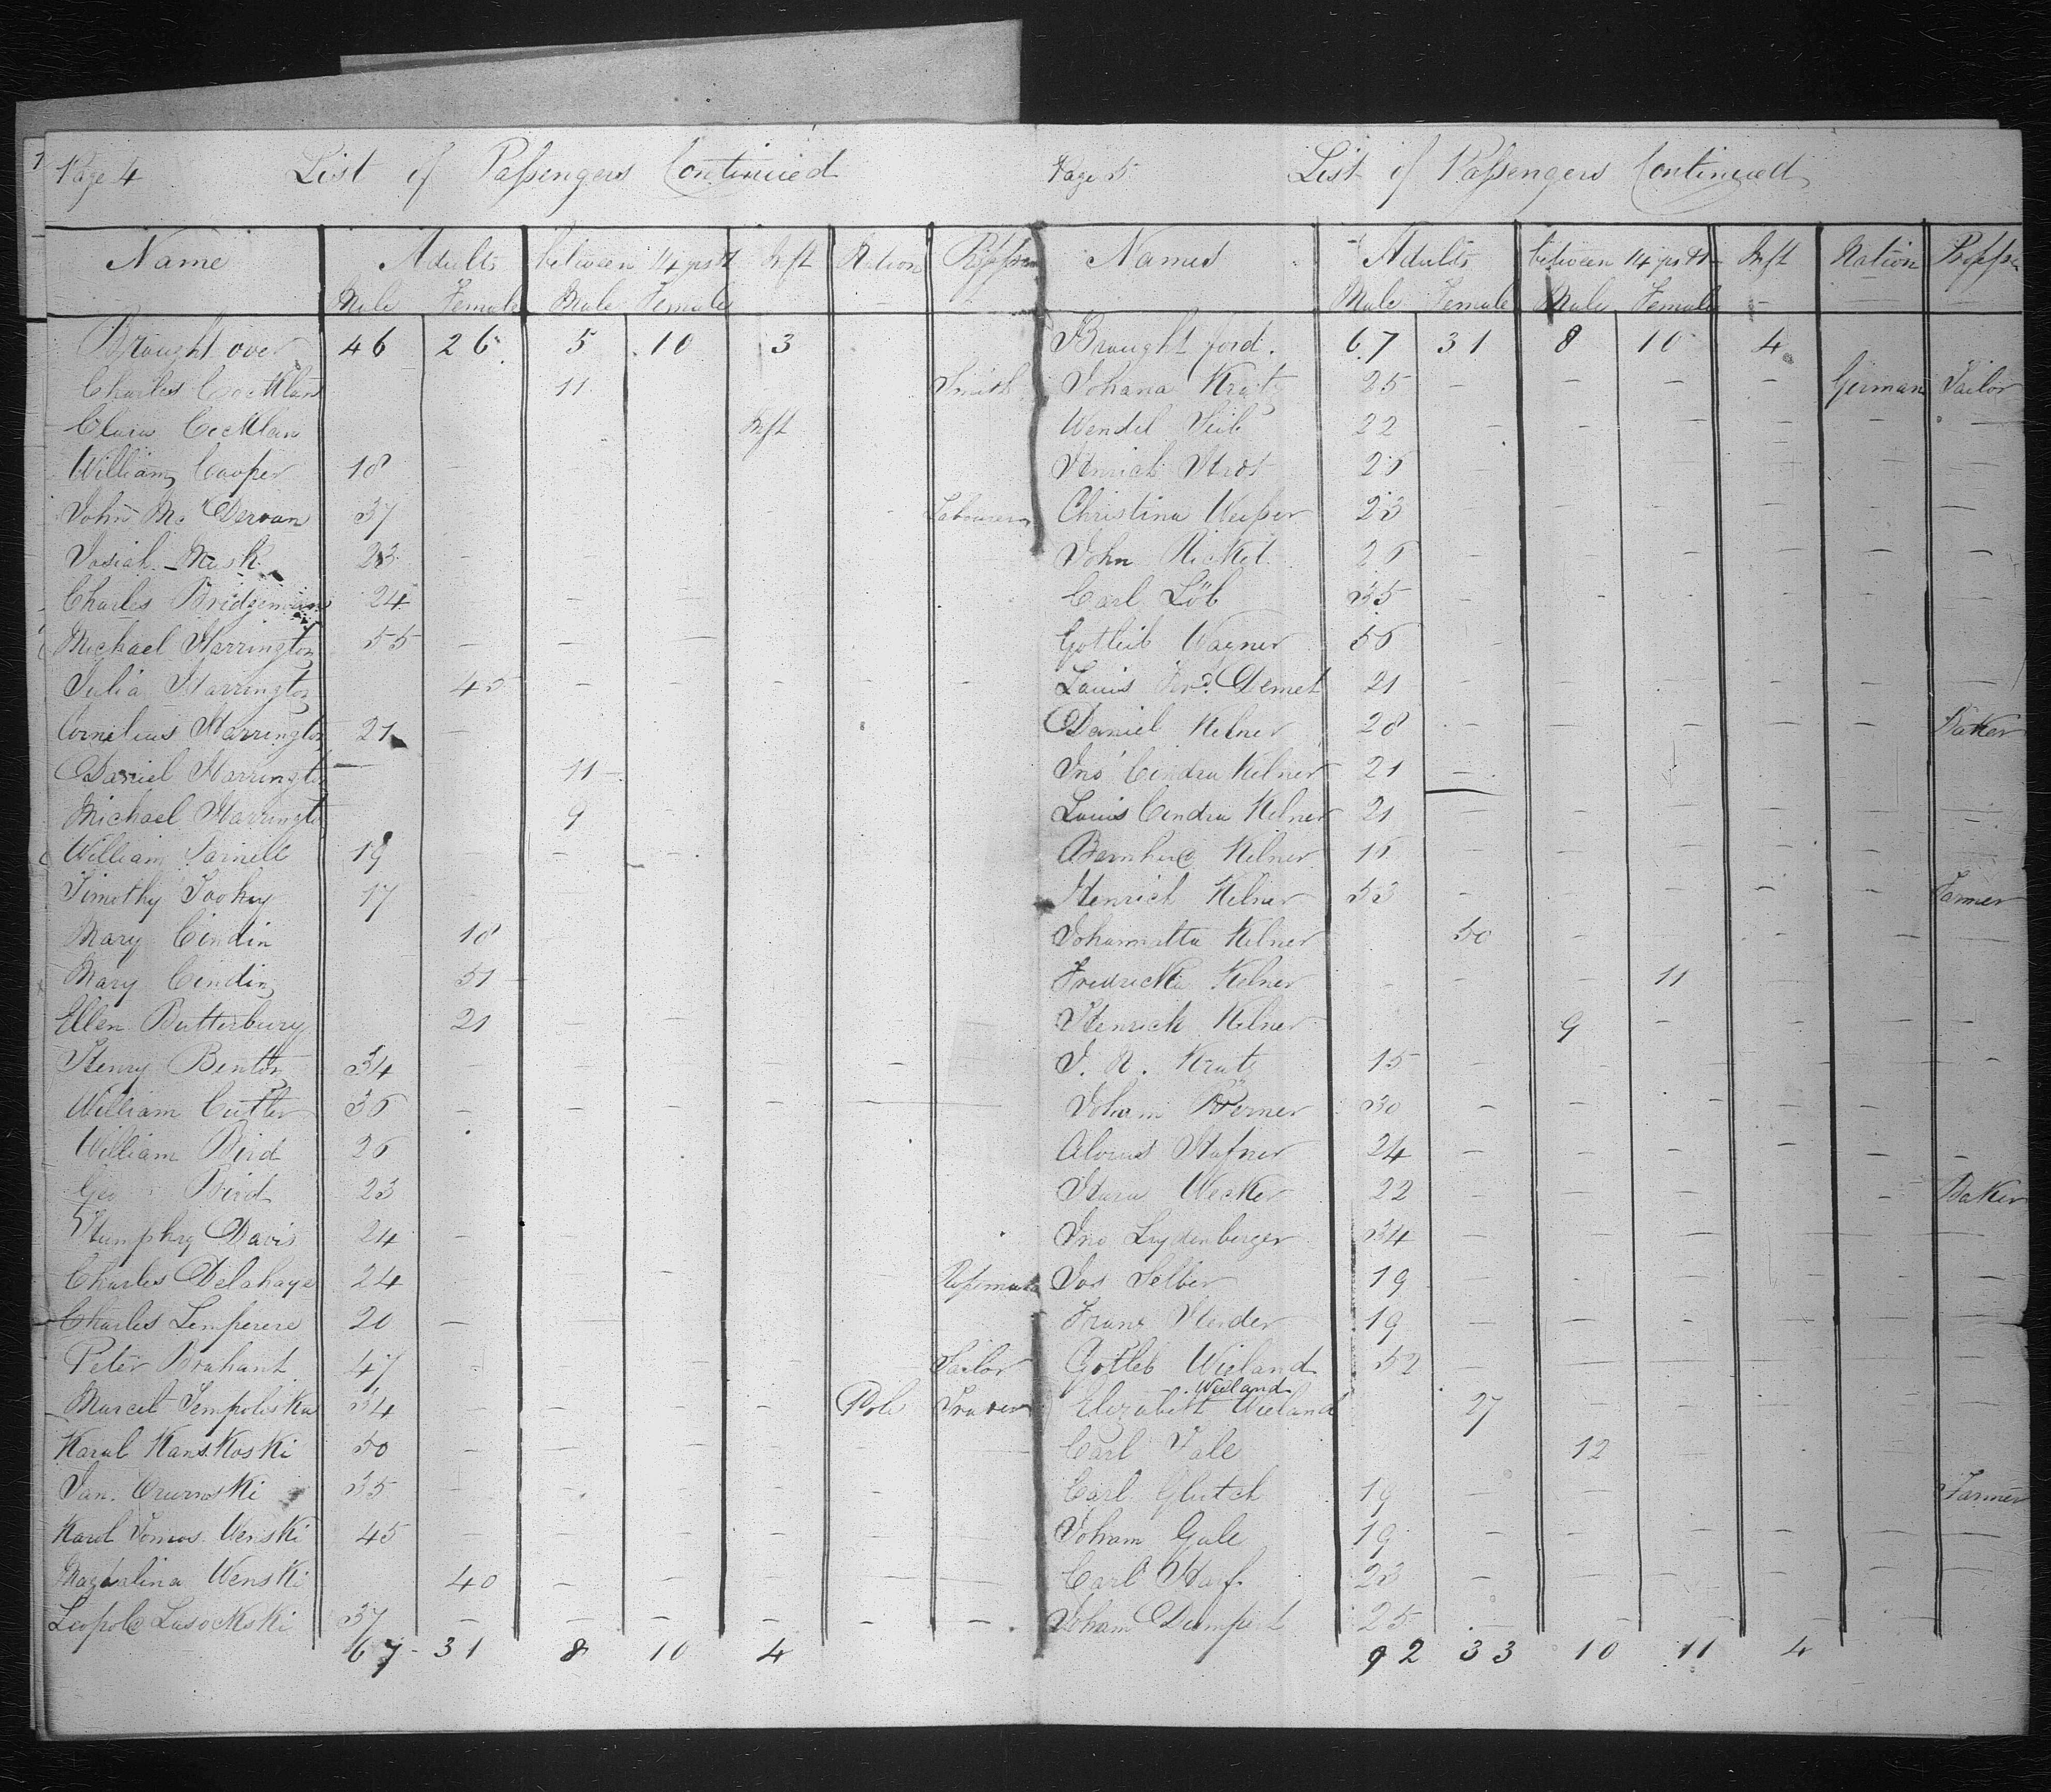 Page 4 List of Passengers Continued
Name Adults between 14 yrs & 1 Inft Nation Profession
Male Female Male Female
Brought over 46 26 5 10 3
Charles 11 Smith
Clara Inft
William Cooper 18
John Mc Dervan 37 Labourer
Josiah Mash 23
Charles Bridgeman 24
Michael Harrington 55
Julia Harrington 45
Cornelius Harrington 21
Daniel Harrington 11
Michael Harrington 9
William 19
Timothy Toohey 17
Mary Cindin 18
Mary Cindin 51
Ellen Butterbury 21
Henry Benton 34
William Cutler 36
William Bird 26
Geo Bird 23
Humphry Davis 24
Charles Delahaye 24
Charles Lemperere 20
Peter Brahant 47 Tailor
Marcet Tempoliska 34 Pole
Karal Kans.Koski 50
Jan. 35
Karol Tomos Wenski 45
Magdalina Wenski 40
Leopold Lusockski 37
67 - 31 8 10 4
Page 5 List of Passengers Continued
Names Adults between 14 yrs & 1 Inft Nation Profess
Male Female Male Female
Brought ford. 67 31 8 10 4
Johana Kratz 25 German Tailor
Wendel Seib 22
Henrich 26
Christina Weisser 23
John Ricket 26
Carl Löb 35
Gotleib Wagner 56
Louis Ferd. Demet 21
Daniel Kelner 28 Baker
Jno Cindra Kelner 21
Louis Cindra Kelner 21
Bernherd Kelner 16
Henrich Kelner 53 Farmer
Johannatta Kelner 50
Fredricka Kelner 11
Henrich Kelner 9
J. R. Kratz 15
Joham Berner 30
Alouis Hafner 24
Hara Wecker 22 Baker
Jno Lydenberger 34
Jos Selber 19
Franz Herder 19
Gotleb Wieland 52
Wieland
Elizabett Wieland 27
Carl Tale 12
Carl Glutch 19 Farmer
Joham Gale 19
Carl Harf 23
Joham 25
92 33 10 11 4